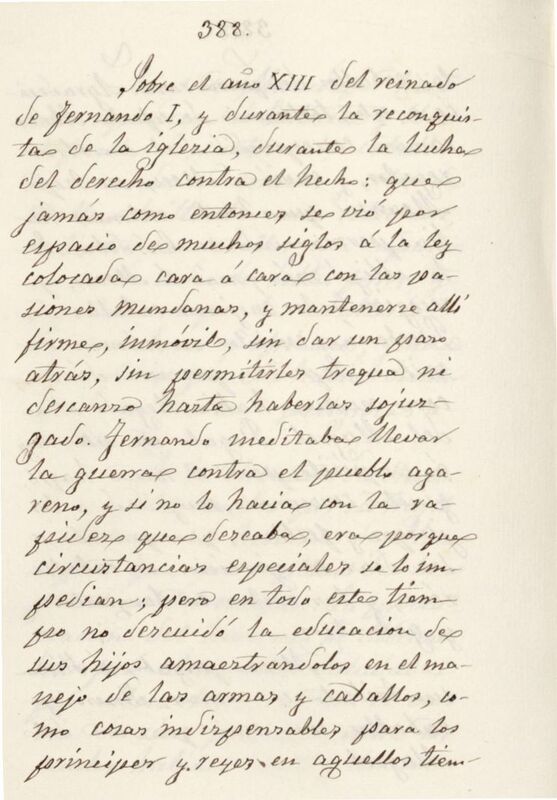 388.
Sobre el año XIII del reinado
de Fernando I, y durante la reconquis-
ta de la iglesia, durante la lucha
del derecho contra el hecho: que
jamás como entonces se vió por
espacio de muchos siglos á la ley
colocada cara á cara con las pa-
siones mundanas, y mantenerse allí
firme, inmóvil, sin dar un paso
atrás, sin permitirles tregua ni
descanso hasta haberlas sojuz-
gado. Fernando meditaba llevar
la guerra contra el pueblo aga-
reno, y si no lo hacia con la ra-
pidez que deseaba, era porque
circustancias especiales se lo im-
pedian; pero en todo este tiem-
po no descuidó la educacion de
sus hijos amaestrándolos en el ma-
nejo de las armas y caballos, co-
mo cosas indispensables para los
príncipes y reyes en aquellos tiem-